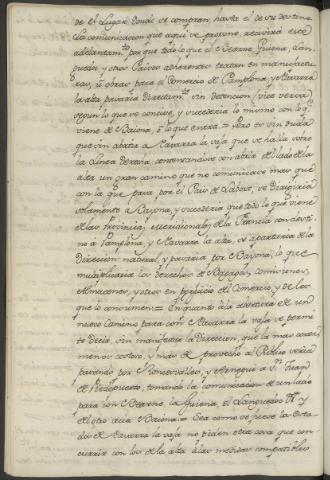 de el Lugar donde se compran, hasta el de su destino.
La comunicacion que aqui se propone, recivirá este
adelantam.to por que todo lo que el Bearne, Guiena, Lan-
guedoc y otros Paises adherentes texan en manufactu-
ras, u obras para el Comercio de Pamplona, y Navarra
la alta pasaria directam.te sin detencion, vice versa
segun lo que se concive, y sucederia lo mismo con lo q.e
viene de Baiona, o lo que entra. = Pero sin duda
que sin abrir a Navarra la vaja que se halla sobre
la Linea derecha, contentandose con abrir el lado de la
alta un gran camino que no comunicare mas que
con la que pasa por el Pais de Labort, se dirigiria
solamente a Bayona, y sucederia que todo lo que viene
de las Provincias, de la Francia con desti-
no a Pamplona, y Navarra la alta, se apartaria de la
Direccion natural, y pasaria por Bayona, lo que
multiplicaria los derechos de Pasages, comisiones,
Almacenes, y otros en perjuicio del Comercio, y de los
que lo consumen. = En quanto a la directriz de un
nuevo Camino para con Navarra la vaja se permi-
te decir, sin manifestar la Direccion, que la mas corta
menos costosa, y mas de provecho al Publico seria
pasando por Roncesvalles, y Arnegui a S.n Juan
de Piedepuerto, tomando la comunicacion de un lado
para con Bearne, la Guiena, el Languedoc &.a y
del otro acia Baiona. = Sea como se fuere los Esta-
dos de Navarra la vaja no piden otra cosa que con-
currir con los de la alta a las medidas compatibles